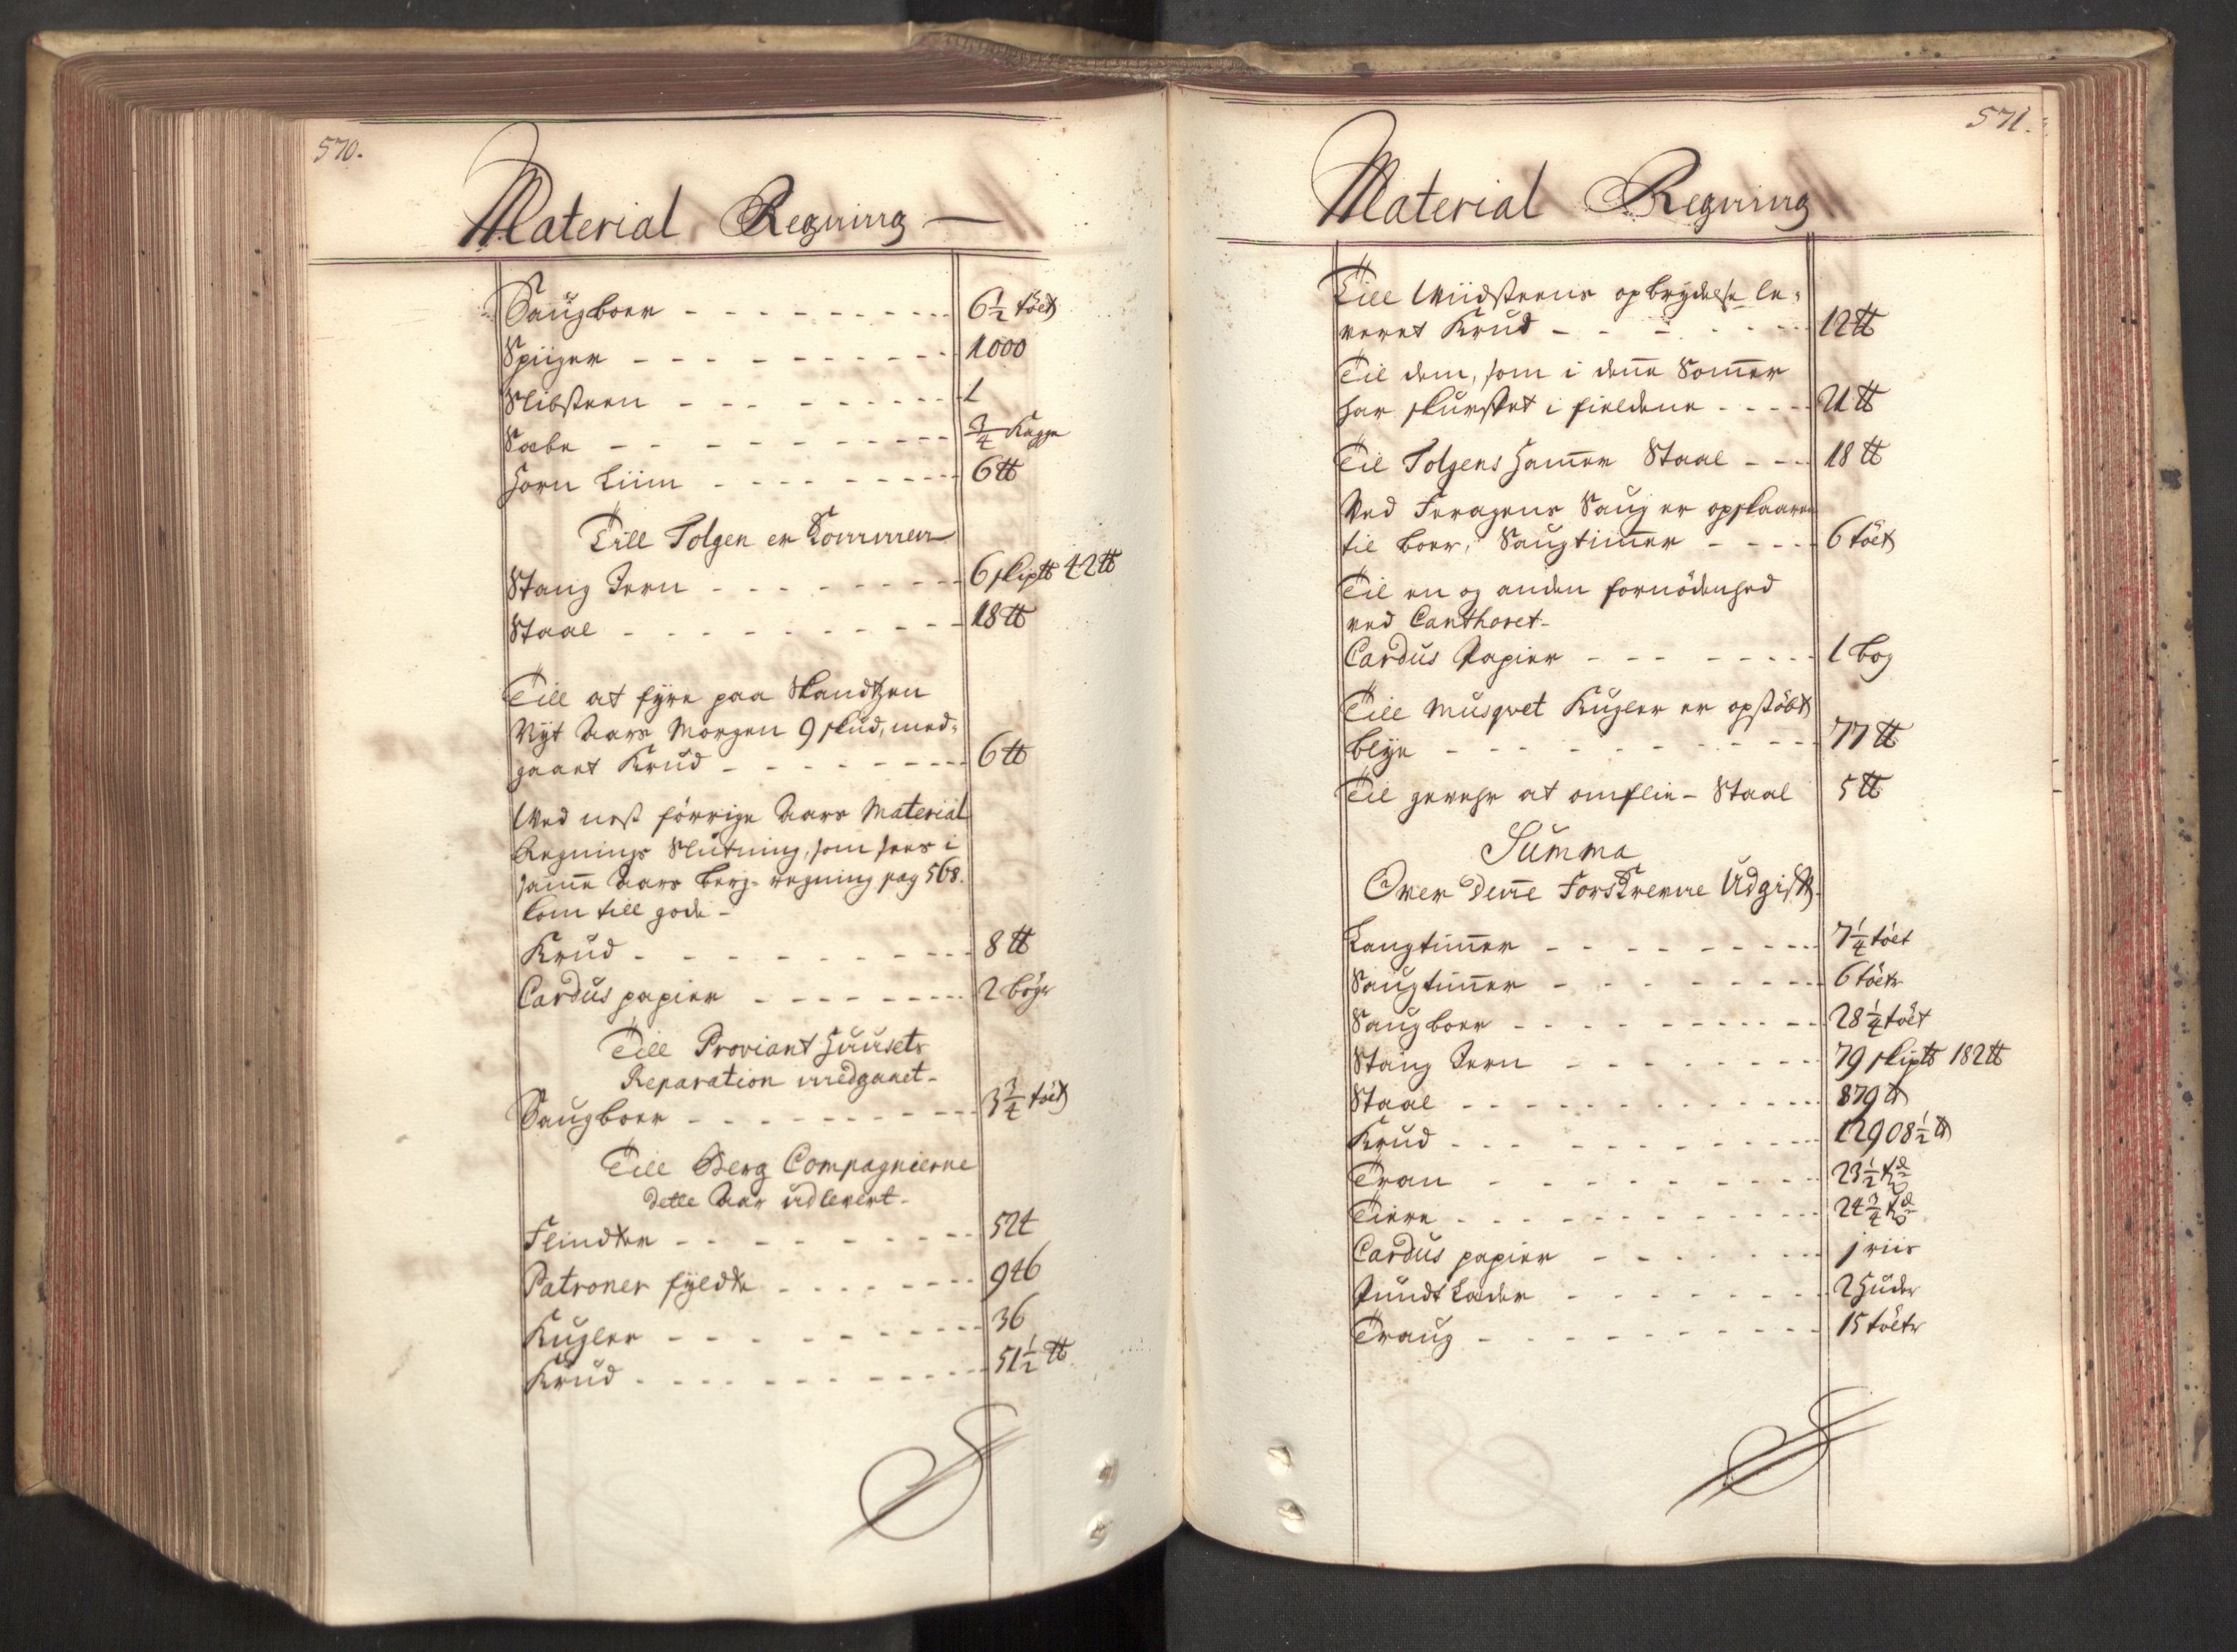 570.
Material Regning
Saugboer - - - 6 1/2 tölt
Spiiger - - - 1000
Slibsteen - - - 1
Sæbe - - - 3/4 Kagge
Horn Liim - - - 6 ℔
Till Tolgen er Kommen
Stang Jern - - - 6 skip℔ 42 ℔
Staal - - - 18 ℔
Till at fyre paa Skandtzen
Nyt Aars Morgen 9 skud, med-
gaaet Krud - - - 6 ℔
Ved nest förrige Aars Material
Regnings Slutning, som sees i
samme Aars berg-regning pag 568.
kom till gode -
Krud - - - 8 ℔
Cardus papier - - - 2 bøger
Till Proviant Huusets
Reparation medgaaet -
Saugboer - - - 3 3/4 tölt
Till Berg Compagnierne
dette Aar udlevert -
Flindter - - - 524
Patroner fyldte - - - 946
Kugler - - - 36
Krud - - - 51 1/2 ℔
571.
Material Regning
Till Miidsteens opbrydelse le-
veret Krud - - - 12 ℔
Til dem, som i denne Sommer
har skurffet i fieldene - - - 21 ℔
Til Tolgens Hammer Staal - - - 18 ℔
Ved Feragens Saug er opskaaren
til boer, Saugtimmer - - - 6 tölt
Til en og anden fornödenhed
ved Canthoret -
Cardus Papier - - - 1 bog
Till Musqvet Kugler er opstöbt
blye - - - 77 ℔
Til gevehr at omflie - Staal 5 ℔
Summa
Over denne Forskrevne Udgift.
Langtimmer - - - 7 1/4 tölt
Saugtimmer - - - 6 tölter
Saugboer - - - 28 1/4 tölt
Stang Jern - - - 79 skip℔ 182 ℔
Staal - - - 879 ℔
Krud - - - 12908 1/2 ℔
Tran - - - 23 1/2 td
Tiere - - - 24 3/4 td
Cardus papier - - - 1 riis
Pundt Læder - - - 2 Huder
Traug - - - 15 tölter